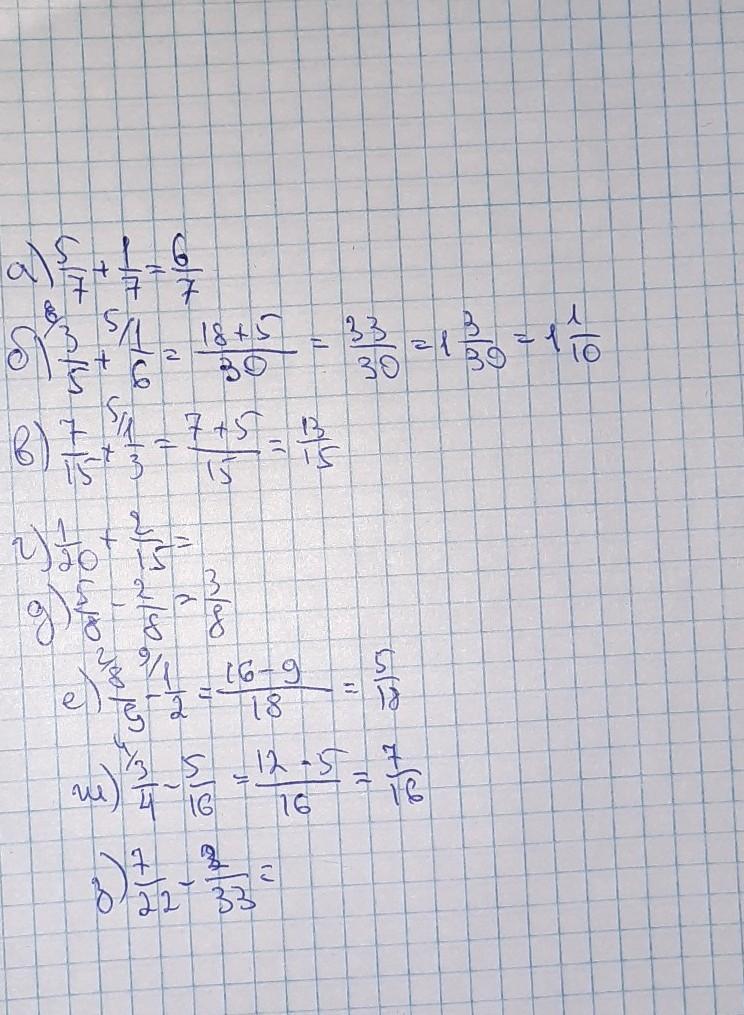 а) 5/7 + 1/7 = 6/7
б) 6/ 3/5 + 5/ 1/6 = (18+5)/30 = 33/30 = 1 3/30 = 1 1/10
в) 7/15 + 5/ 1/3 = (7+5)/15 = 13/15
г) 1/20 + 2/15 =
д) 5/8 - 2/8 = 3/8
е) 2/ 8/9 - 9/ 1/2 = (16-9)/18 = 5/18
ж) 4/ 3/4 - 5/16 = (12-5)/16 = 7/16
з) 7/22 - 2/33 =